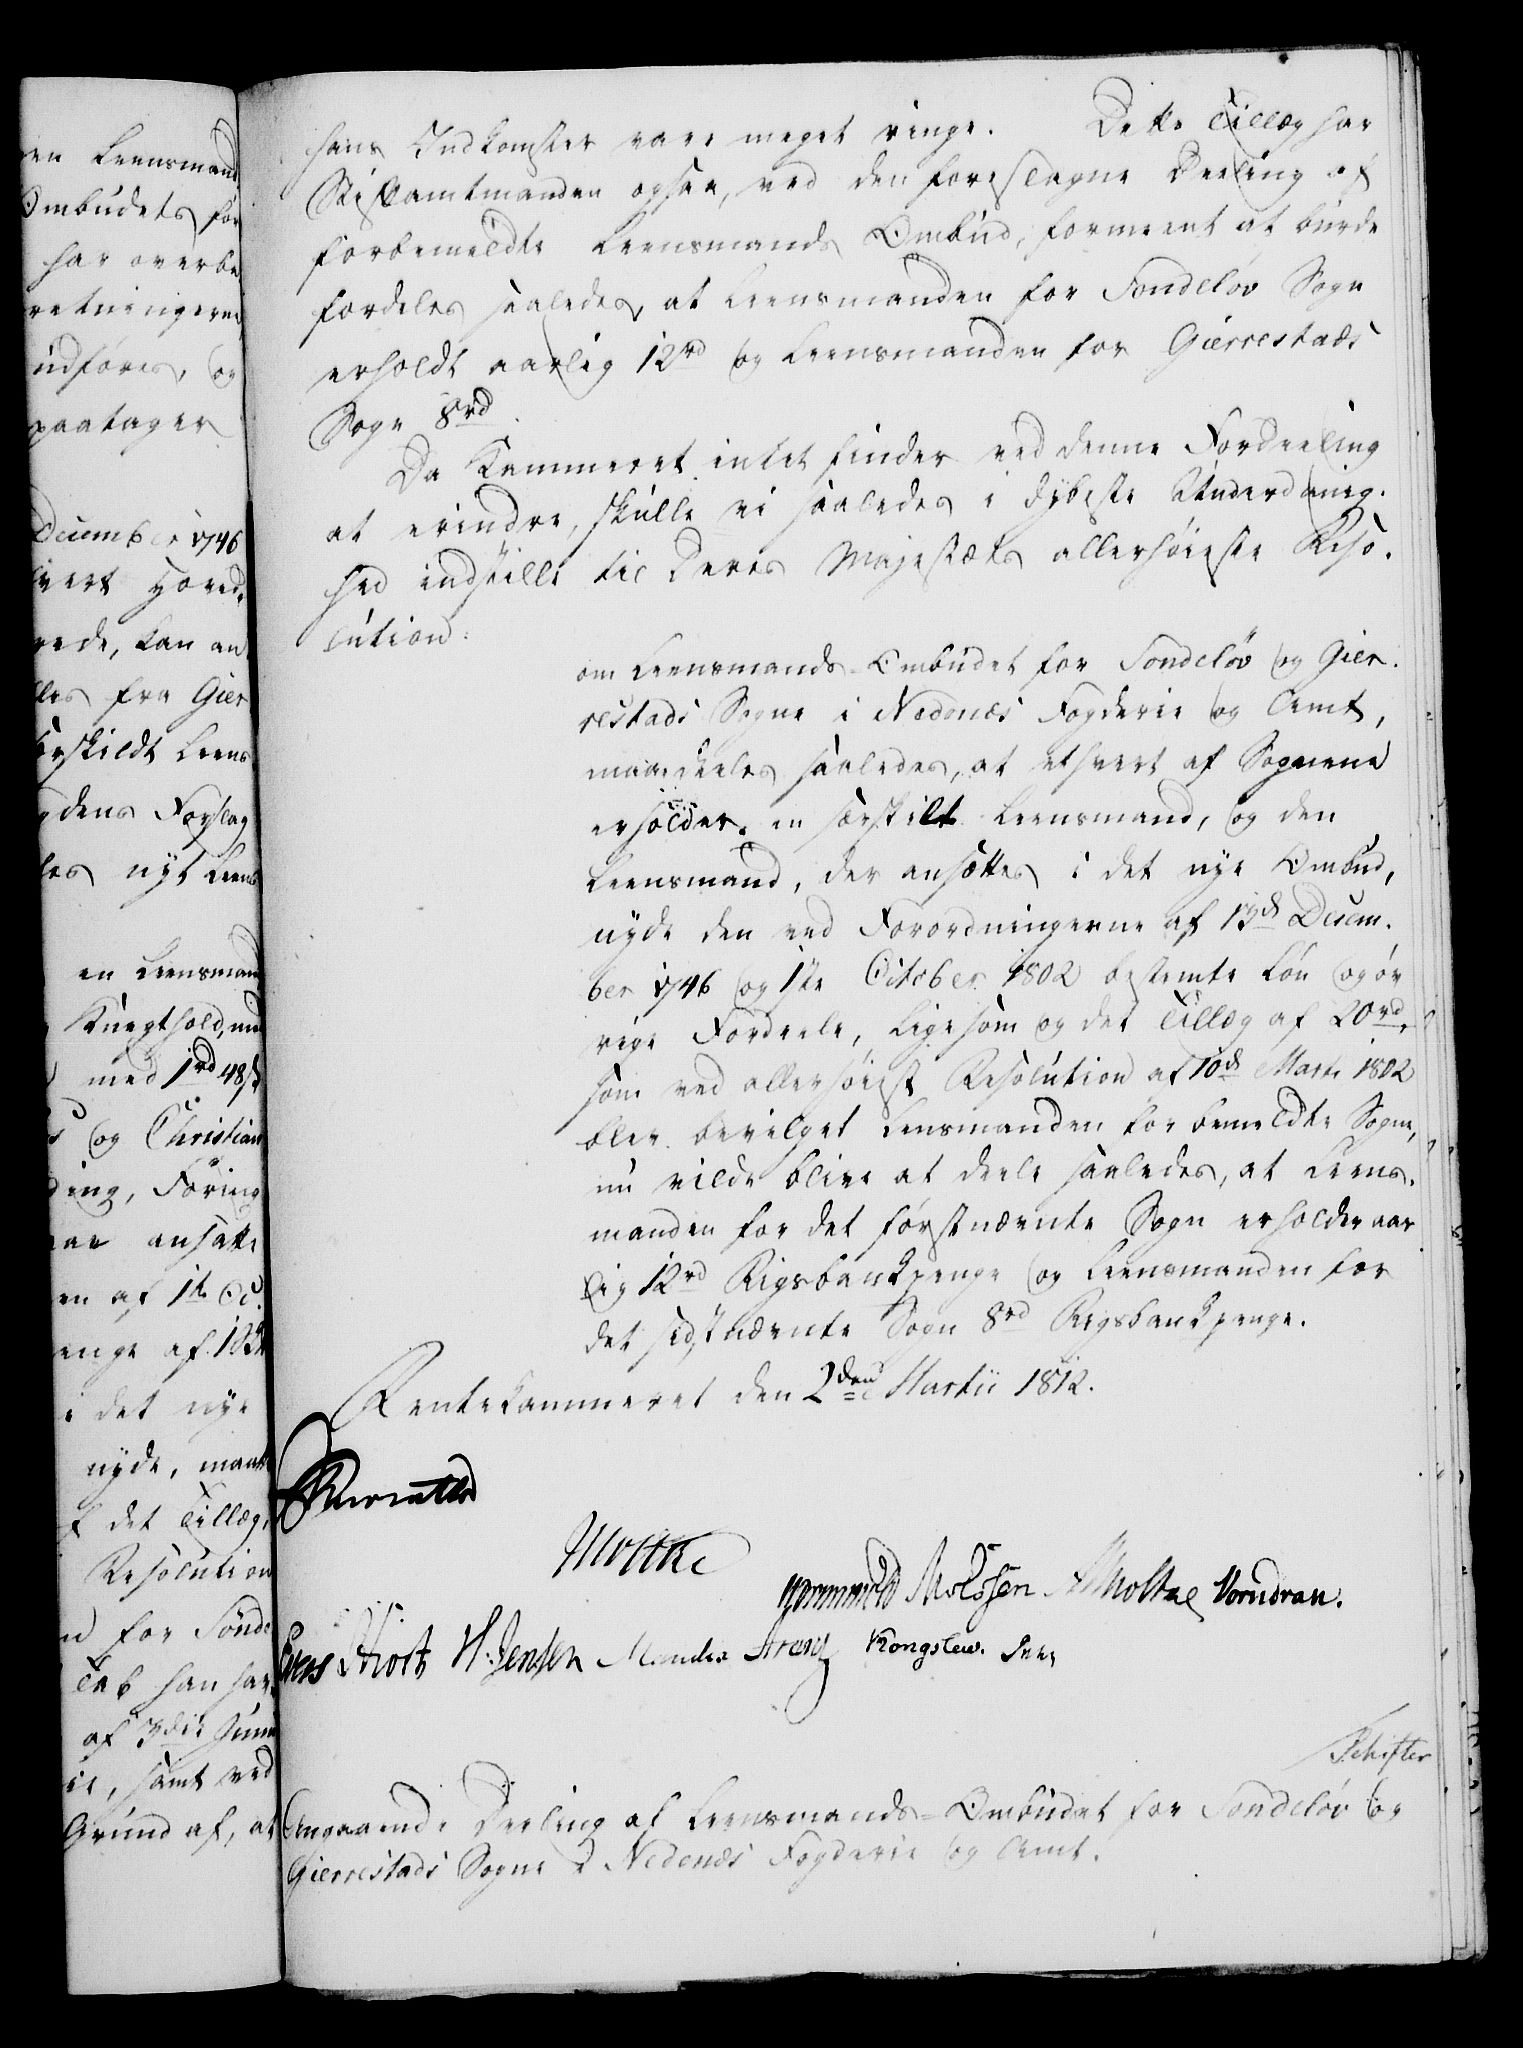 en Leensmand
Ombudets for
har overbe
retningerne
udføres, og
paatager
December 1746
hvert Hoved
rede, kan an
les fra Gier
særskildt Leens
gdens Forslag
les nyt Leens
en Leensmand
Knegthold, um
med 1rd 48s
og Christian
ding, Føring
ansatte
en af 1te Oc
enge af 18
i det nye
nyde, maatte
f det Tillæg,
Resolution
for Sønde
Tab han har
af 3die Junii
samt ved
Grund af, at
hans Indkomster vare meget ringe. Dette Tillæg har
Stiftamtmanden ogsaa, ved den foreslagne Deeling af
forbemeldte Leensmands Ombud, formeent at burde
fordeles saaledes, at Leensmanden for Sondeløv Sogn
erholdt aarlig 12rd og Leensmanden for Gierrestads
Sogn 8rd.
Da Kammeret intet finder ved denne Fordeeling
at erindre, skulle vi saaledes i dybeste Underdanig-
hed indstille til Deres Majestæts allerhøieste Reso-
lution:
om Leensmands-Ombudet for Sondeløv og Gier-
restads Sogne i Nedenæs Fogderie og Amt,
maae deeles saaledes, at ethvert af Sognene
erholder en særskilt Leensmand, og den
Leensmand, der ansættes i det nye Ombud,
nyde den ved Forordningerne af 13de Decem-
ber 1746 og 1ste October 1802 bestemte Løn og øv
rige Fordeele, ligesom og det Tillæg af 20rd,
som ved allerhøiest Resolution af 10de Marts 1802
blev bevilget Lensmanden for bemeldte Sogne,
nu vilde blive at deele saaledes, at Leens-
manden for det førstnævnte Sogn erholder aar
lig 12rd Rigsbankpenge og Leensmanden for
det sidstnævnte Sogn 8rd Rigsbankpenge.
Rentekammeret den 2den Martii 1812.
Moltke
Hammeleff Moltke Vorndran.
Stoltz H: Jensen Kongslew.
Schifter
Angaaende Deeling af Leensmands-Ombudet for Sondeløv og
Gierrestads Sogne i Nedenæs Fogderie og Amt.